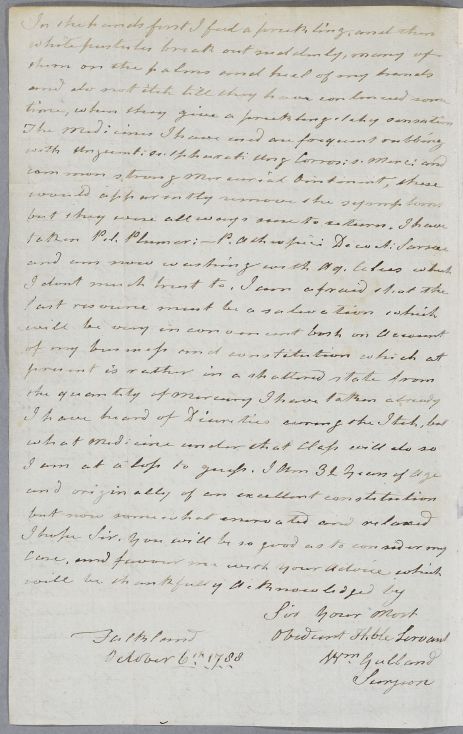 In the hands first I feel a prickling, and then
white pustules break out suddenly, many of
them on the palms and heel of my hands
and do not itch till they have continued some
time, when they give a prickling itchy sensation
The Medicines I have used are frequent rubbing
with Unguent: Sulphurat: Ung Corros: s. Merc: and
common strong Mercurial Ointment, these
would apparently remove the symptoms
but they were allways sure to return. I have
taken Pil. Plumer: P. Æthiopic: Decoct: Sarsae
and am now washing with Aq. Calcis which
I dont much trust to. I am afraid that the
last resource must be a salivation which
will be very inconvenient both on Account
of my business and constitution which at
present is rather in a shattered state from
the quantity of Mercury I have taken already
I have heard of Diuretics curing the Itch, but
what Medicine under that Class will do so
I am at a loss to guess. I Am 32 Years of Age
and originally of an excellent constitution
but now somewhat enervated and relaxed
I hope Sir, You will be so good as to consider my
Case, and favour me with your Advice which
will be thankfully Acknowledged by
Sir Your Most
Obedient Hble Servant
Wm Gulland
Surgeon
Falkland
October 6th 1788